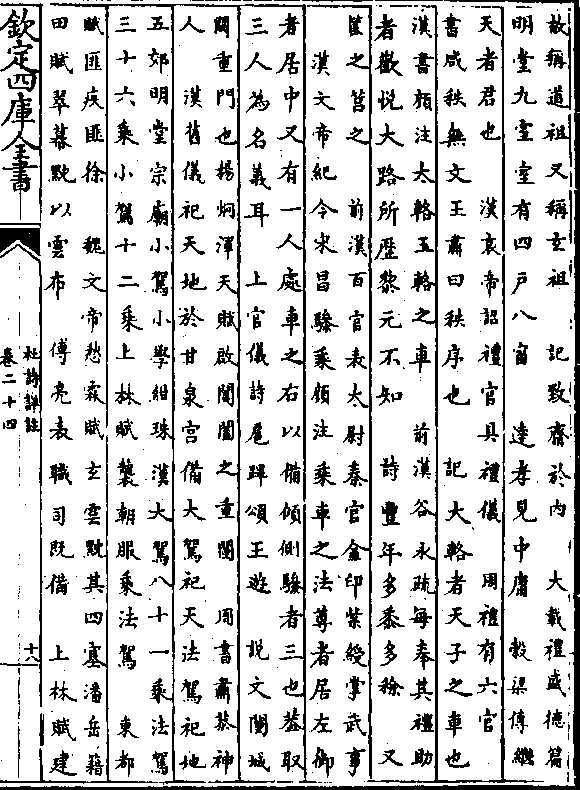 故稱道祖又稱玄祖　記致齋於内　大戴禮盛德篇
明堂九室室有四户八牖　達孝見中庸　穀梁傳繼
天者君也　漢哀帝詔禮官具禮儀　周禮有六官
書咸秩無文王肅曰秩序也　記大輅者天子之車也
漢書顔注大輅玉輅之車　前漢谷永疏毎奉其禮助
者歡悦大路所歷黎元不知　詩豐年多黍多稌　又
筐之筥之　前漢百官表太尉秦官金印紫綬掌武事
漢文帝紀令宋昌驂乘顔注乘車之法尊者居左御
者居中又有一人處車之右以備傾側驂者三也蓋取
三人為名義耳　上官儀詩扈蹕頌王遊　説文闉城
闕重門也楊炯渾天賦啟閶闔之重闉　周書肅恭神
人　漢舊儀祀天地於甘泉宫備大駕祀天法駕祀地
五郊明堂宗廟小駕小學紺珠漢大駕八十一乘法駕
三十六乘小駕十二乘上林賦襲朝服乘法駕　東都
賦匪疾匪徐　魏文帝愁霖賦玄雲黕其四塞潘岳籍
田賦翠幕黕以雲布　傅亮表職司既備　上林賦建
欽定四庫全書
杜詩詳註
卷二十四
十六